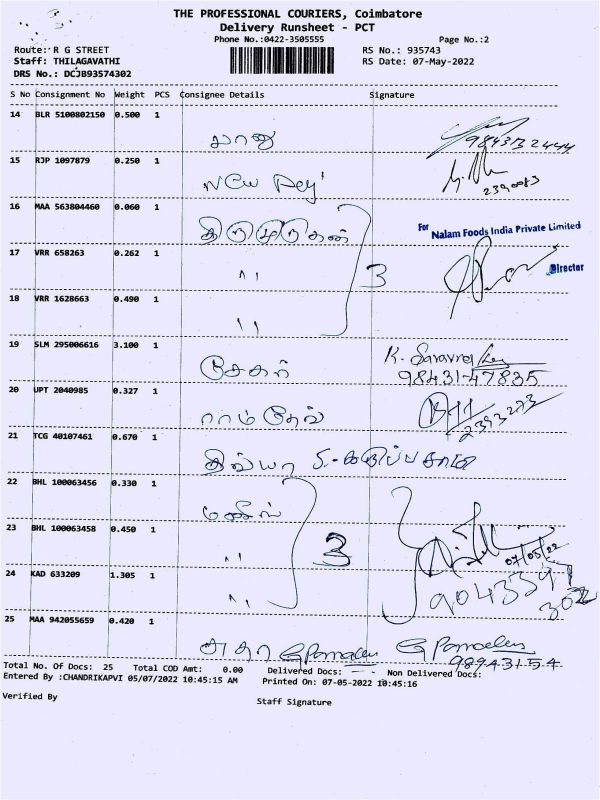 THE PROFESSIONAL COURIERS, Coimbatore
Delivery Runsheet - PCT
Phone No.:0422-3505555 Page No.:2
Route: R G STREET RS No.: 935743
Staff: THILAGAVATHI RS Date: 07-May-2022
DRS No.: DCJB93574302
S No Consignment No Weight PCS Consignee Details Signature
14 BLR 5100802150 0.500 1
பானு
15 RJP 1097879 0.250 1
New
16 MAA 563804460 0.060 1
திருமுருகன்
For Nalam Foods India Private Limited
17 VRR 658263 0.262 1
" 3 Director
18 VRR 1628663 0.490 1
"
19 SLM 295006616 3.100 1
சேகர் K.
98431-47835
20 UPT 2040985 0.327 1
ராம்தேவ் 2393273
21 TCG 40107461 0.670 1
திவ்யா
22 BHL 100063456 0.330 1
23 BHL 100063458 0.450 1
" 3 07/05/22
24 KAD 633209 1.305 1
"
25 MAA 942055659 0.420 1
சுதா
Total No. Of Docs: 25 Total COD Amt: 0.00 Delivered Docs: Non Delivered Docs:
Entered By :CHANDRIKAPVI 05/07/2022 10:45:15 AM Printed On: 07-05-2022 10:45:16
Verified By Staff Signature